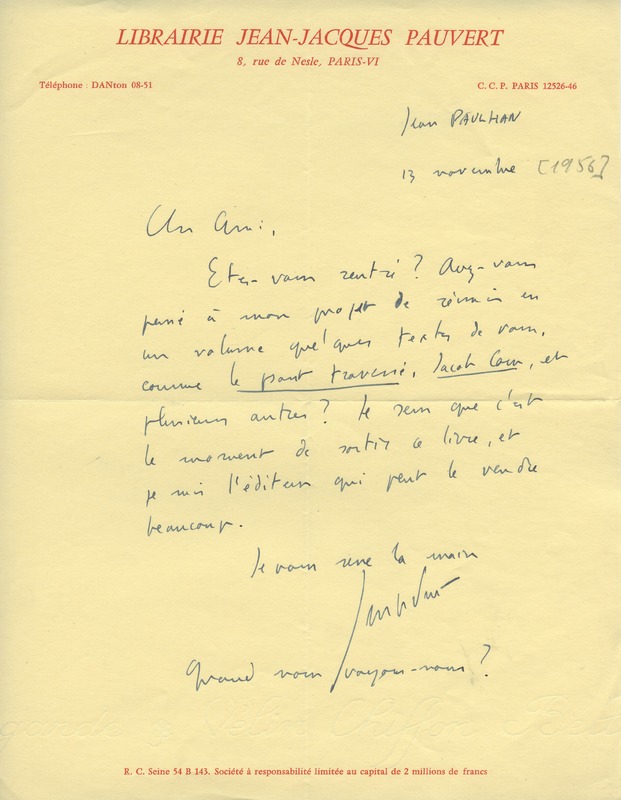 LIBRAIRIE JEAN-JACQUES PAUVERT
8, rue de Nesle, PARIS-VI
Téléphone : DANton 08-51
C. C. P. PARIS 12526-46
Jean PAULHAN
13 novembre [1956]
Ami,
Etes-vous rentré ? Avez-vous
pensé à mon projet de réunir en
un volume quelques textes de vous,
comme le pont traversé, Jacob Cow, et
plusieurs autres ? Je sens que c'est
le moment de sortir ce livre, et
je suis l'éditeur qui peut le vendre
beaucoup.
Je vous serre la main
Quand nous voyons-nous ?
R. C. Seine 54 B 143. Société à responsabilité limitée au capital de 2 millions de francs